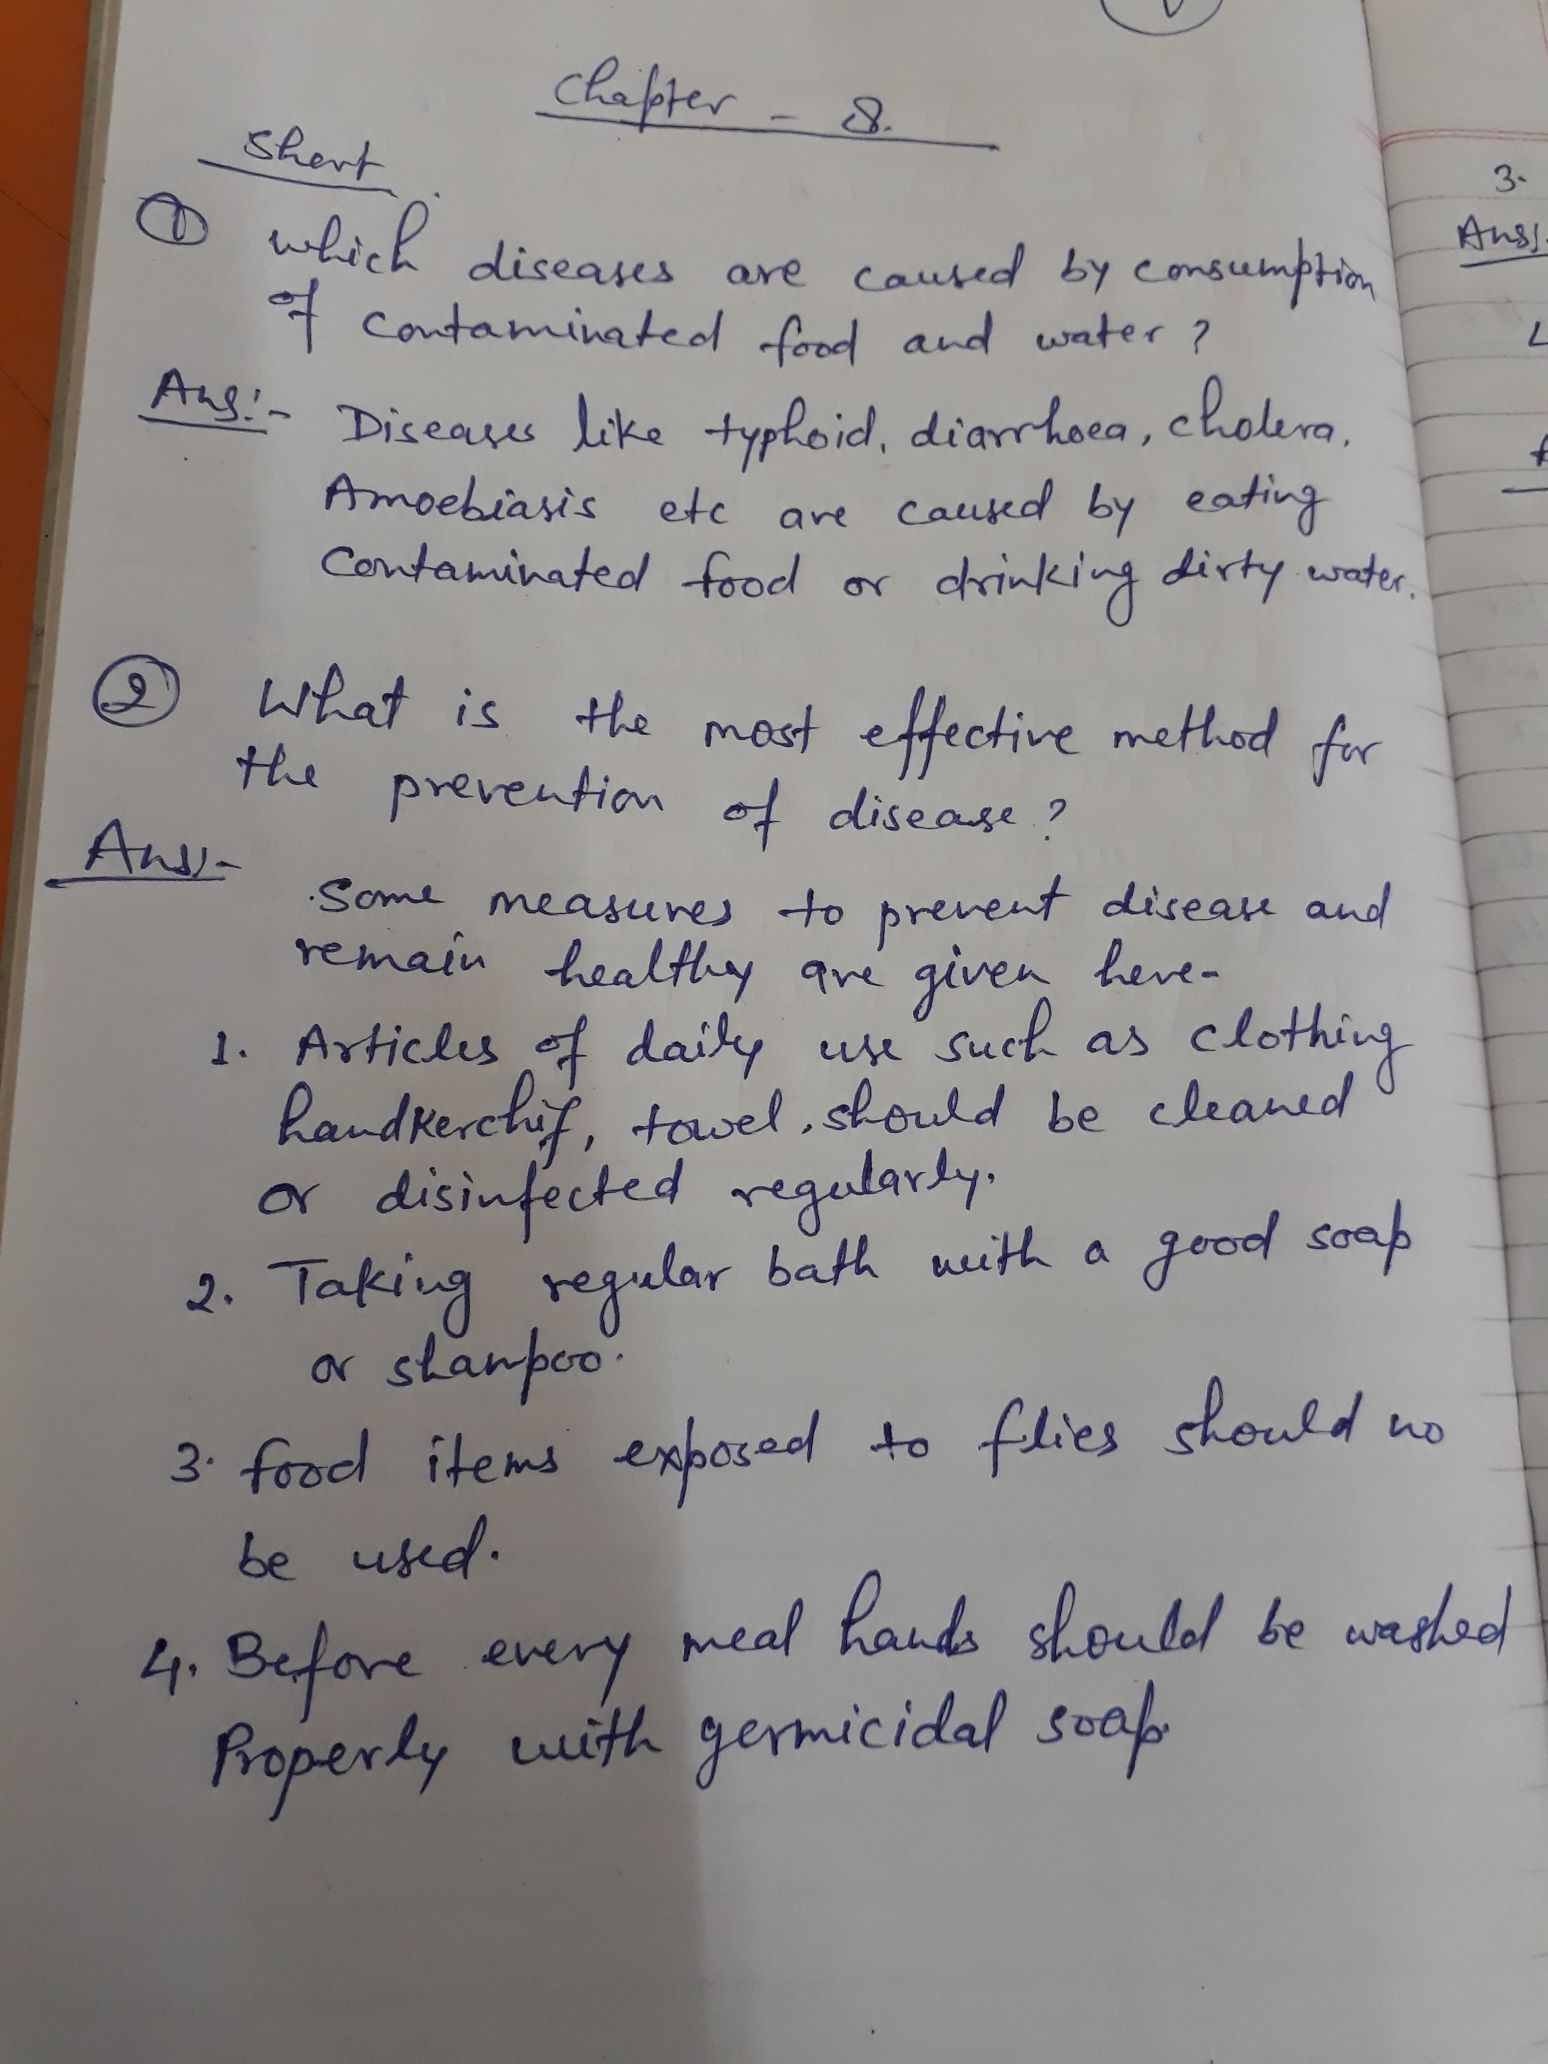 Chapter - 8.
Short
① which diseases are caused by consumption
of contaminated food and water?
Ans:- Diseases like typhoid, diarrhoea, cholera,
Amoebiasis etc are caused by eating
Contaminated food or drinking dirty water.
② What is the most effective method for
the prevention of disease?
Ans:-
Some measures to prevent disease and
remain healthy are given here-
1. Articles of daily use such as clothing
handkerchif, towel, should be cleaned
or disinfected regularly.
2. Taking regular bath with a good soap
or shampoo.
3. food items exposed to flies should no
be used.
4. Before every meal hands should be washed
Properly with germicidal soap.
3.
Ans:-